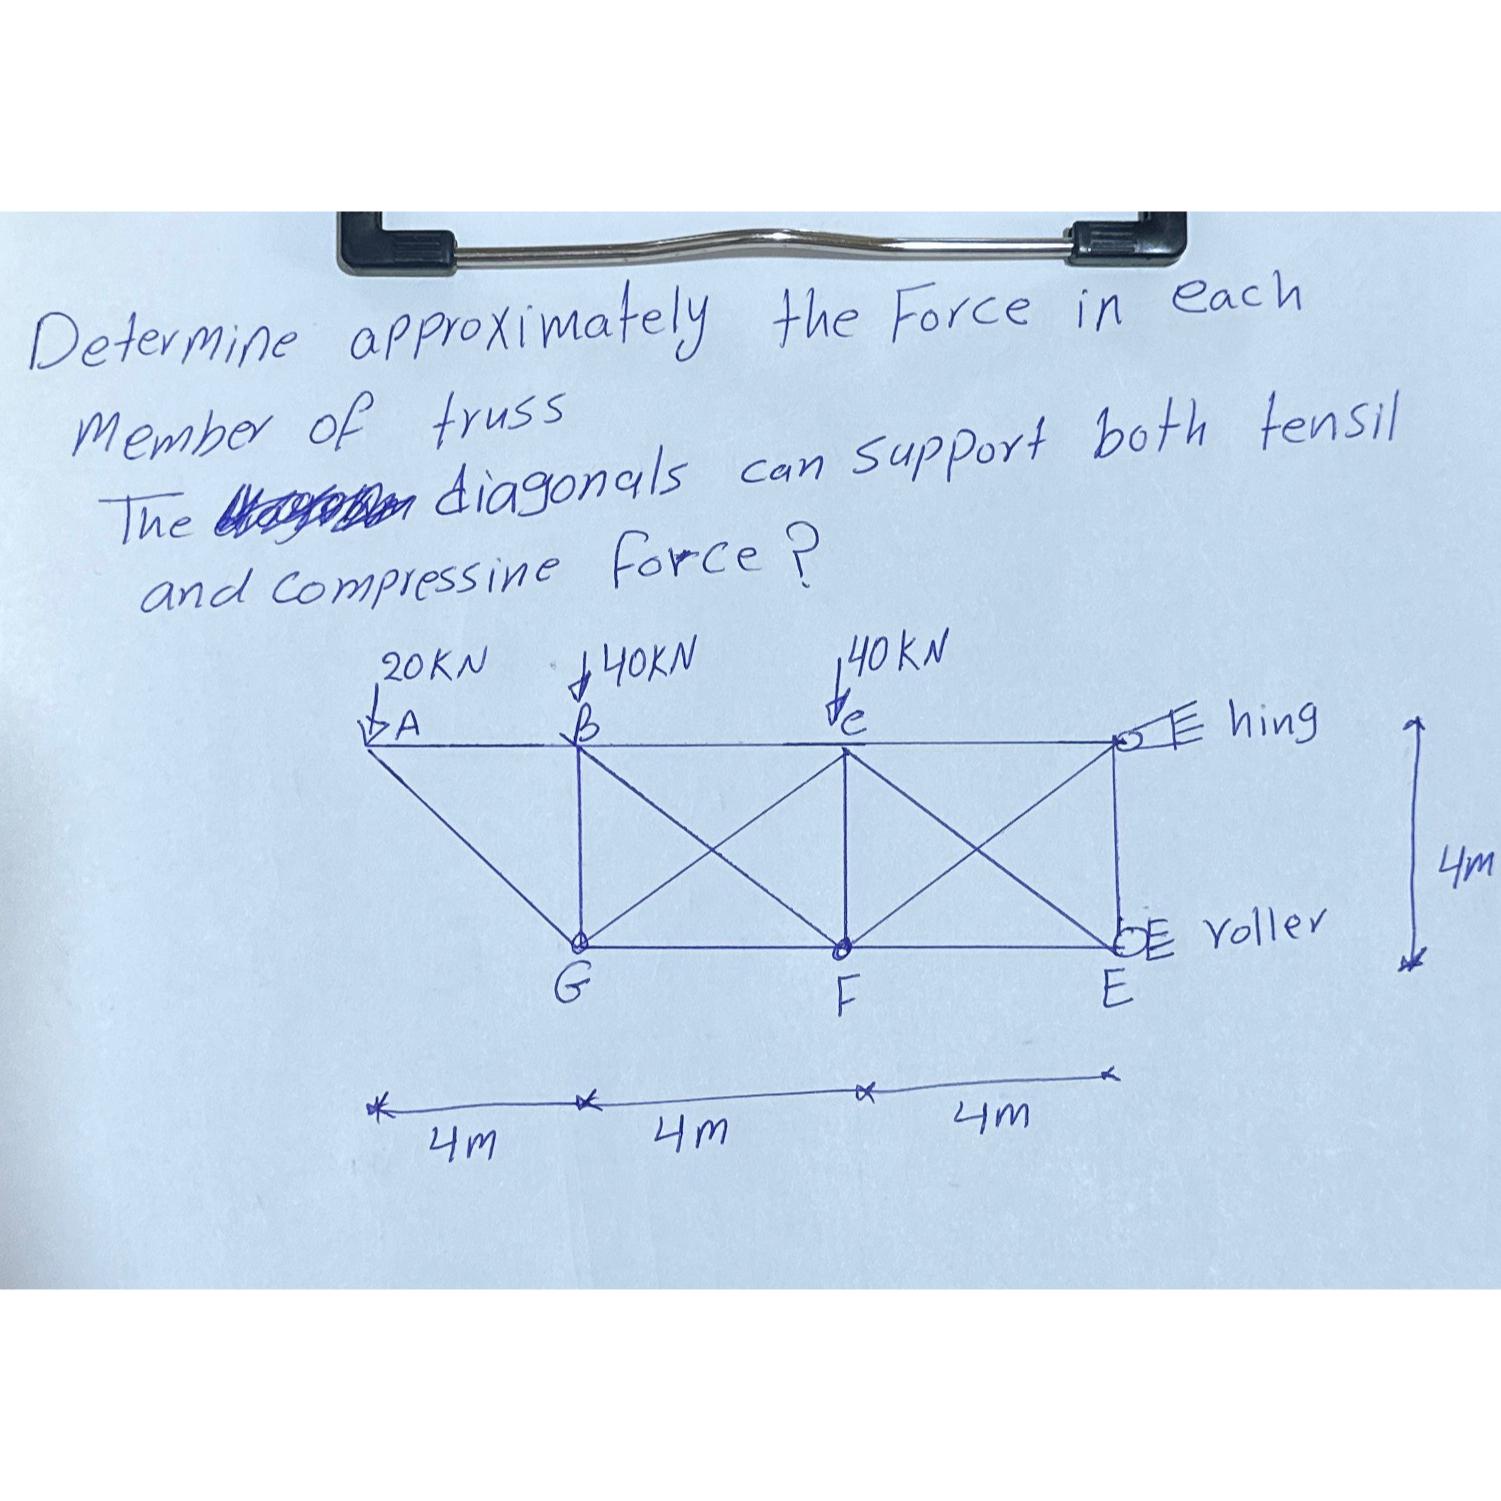 Determine approximately the Force in each
Member of truss
The diagonals can support both tensil
and compressine Force?
20KN 40KN 40KN
A B c E hing
4m
E roller
G F E
4m 4m 4m